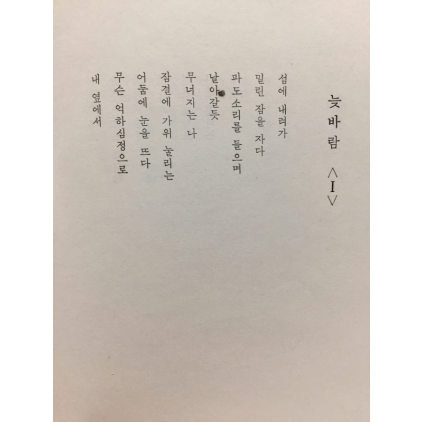 늦바람 <I>
섬에 내려가
밀린 잠을 자다
파도소리를 들으며
날아갈듯
무너지는 나
잠결에 가위 눌리는
어둠에 눈을 뜨다
무슨 억하심정으로
내 옆에서